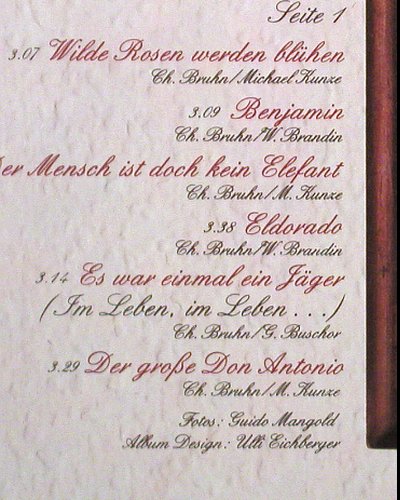 Seite 1
3.07 Wilde Rosen werden blühen
Ch. Bruhn/Michael Kunze
3.09 Benjamin
Ch. Bruhn/W. Brandin
Mensch ist doch kein Elefant
Ch. Bruhn/M. Kunze
3.38 Eldorado
Ch. Bruhn/W. Brandin
3.14 Es war einmal ein Jäger
(Im Leben, im Leben . . .)
Ch. Bruhn/G. Buschor
3.29 Der große Don Antonio
Ch. Bruhn/M. Kunze
Fotos: Guido Mangold
Album Design: Ulli Eichberger